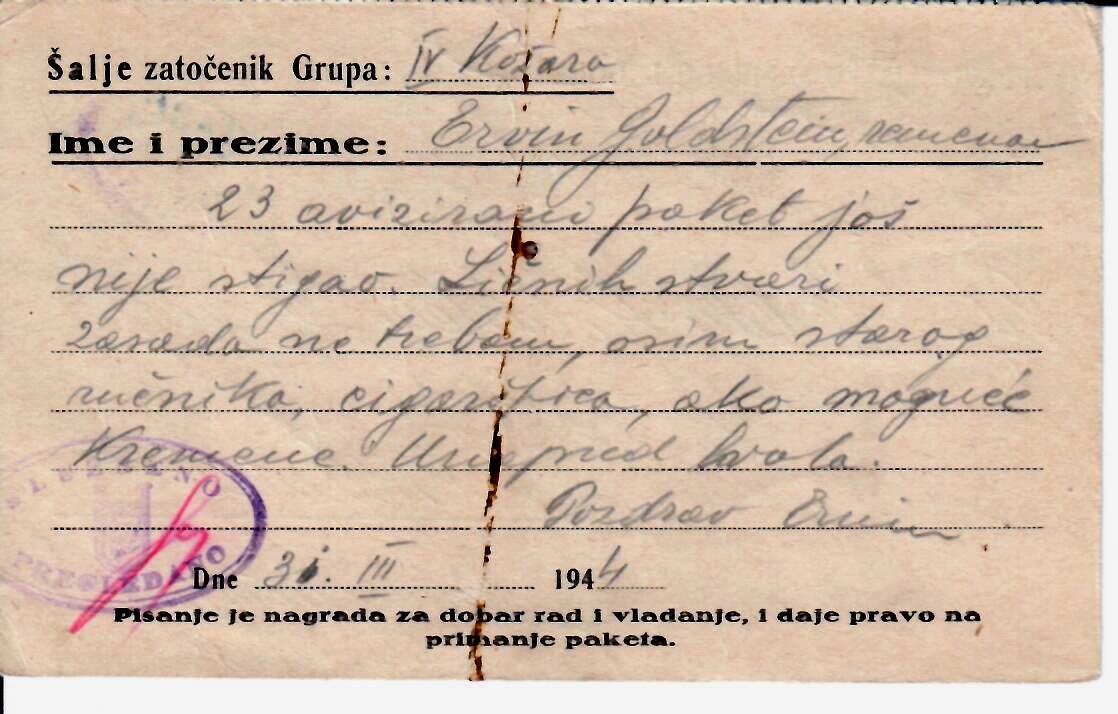 Šalje zatočenik Grupa: IV Kožara
Ime i prezime: Ervin Goldstein, remenar
23 avizirani paket još
nije stigao. Ličnih stvari
zasada ne trebam, osim starog
ručnika, cigaretica, ako moguće
Kremene. Unapred hvala.
Pozdrav Ervin
SLUŽBENO
PREGLEDANO
Dne 31. III 1944
Pisanje je nagrada za dobar rad i vladanje, i daje pravo na
primanje paketa.